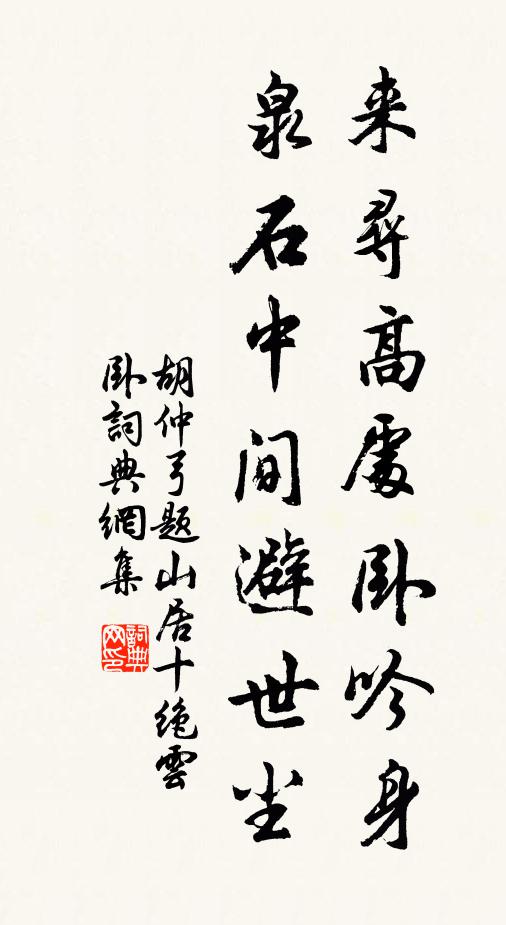 来尋高處卧吟身
泉石中间避世尘
胡仲弓题山居十绝雲
卧詞典網集
詞典网印